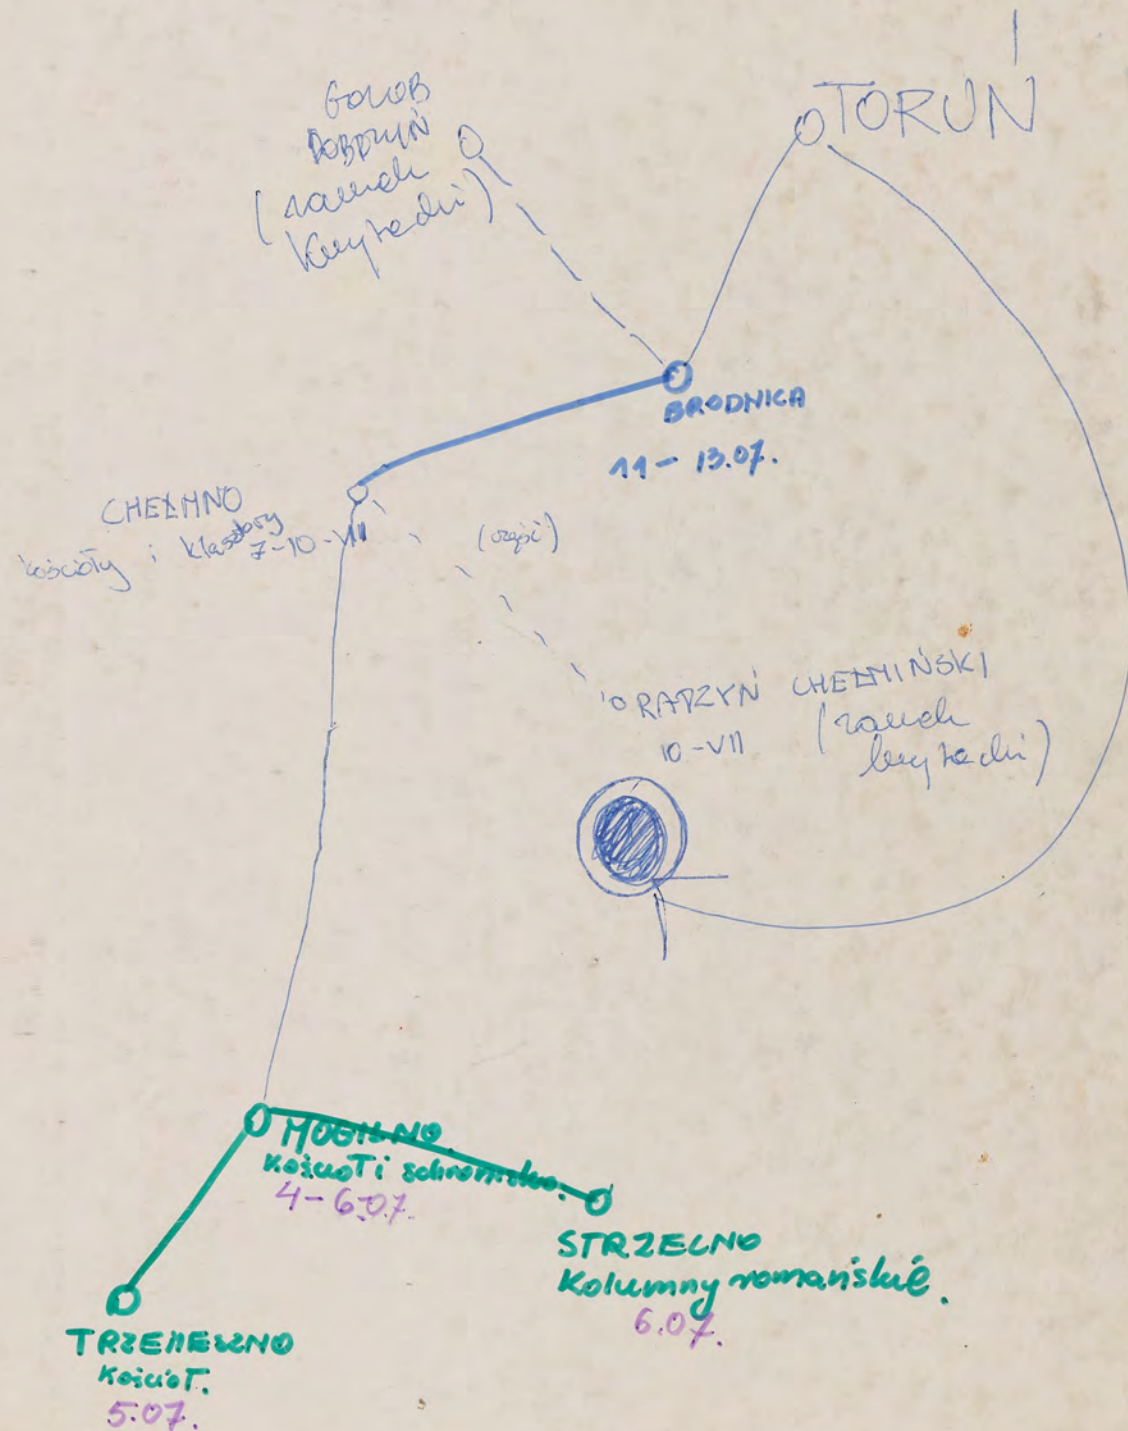 GOLUB
DOBRZYŃ
(zamek
krzyżacki)
TORUŃ
BRODNICA
11-13.07.
CHEŁMNO
kościoły i klasztory
7-10-VII
(część)
RADZYŃ CHEŁMIŃSKI
10-VII
(zamek
krzyżacki)
MOGILNO.
Kościoł i schronisko.
4-6.07.
STRZELNO
Kolumny romańskie.
6.07.
TRZEMESZNO
Kościoł.
5.07.